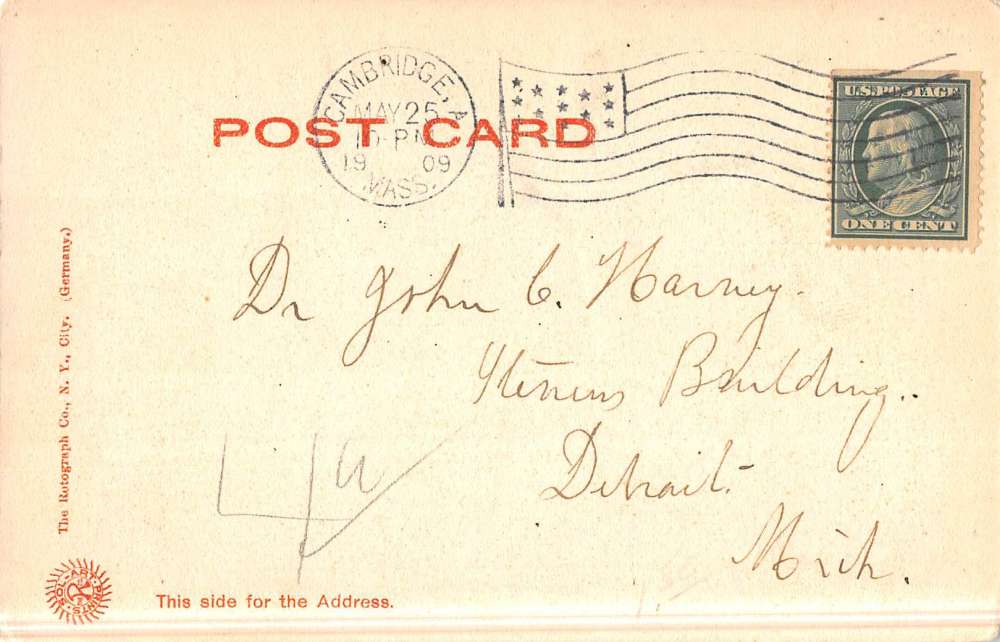 CAMBRIDGE, A
MAY 25
10 PM
19 09
MASS.
POST CARD
U.S. POSTAGE
ONE CENT
Dr John C. Harvey.
Stevens Building.
Detroit.
Mich.
The Rotograph Co., N. Y., City. (Germany.)
SOL-ART-PRINTS
This side for the Address.